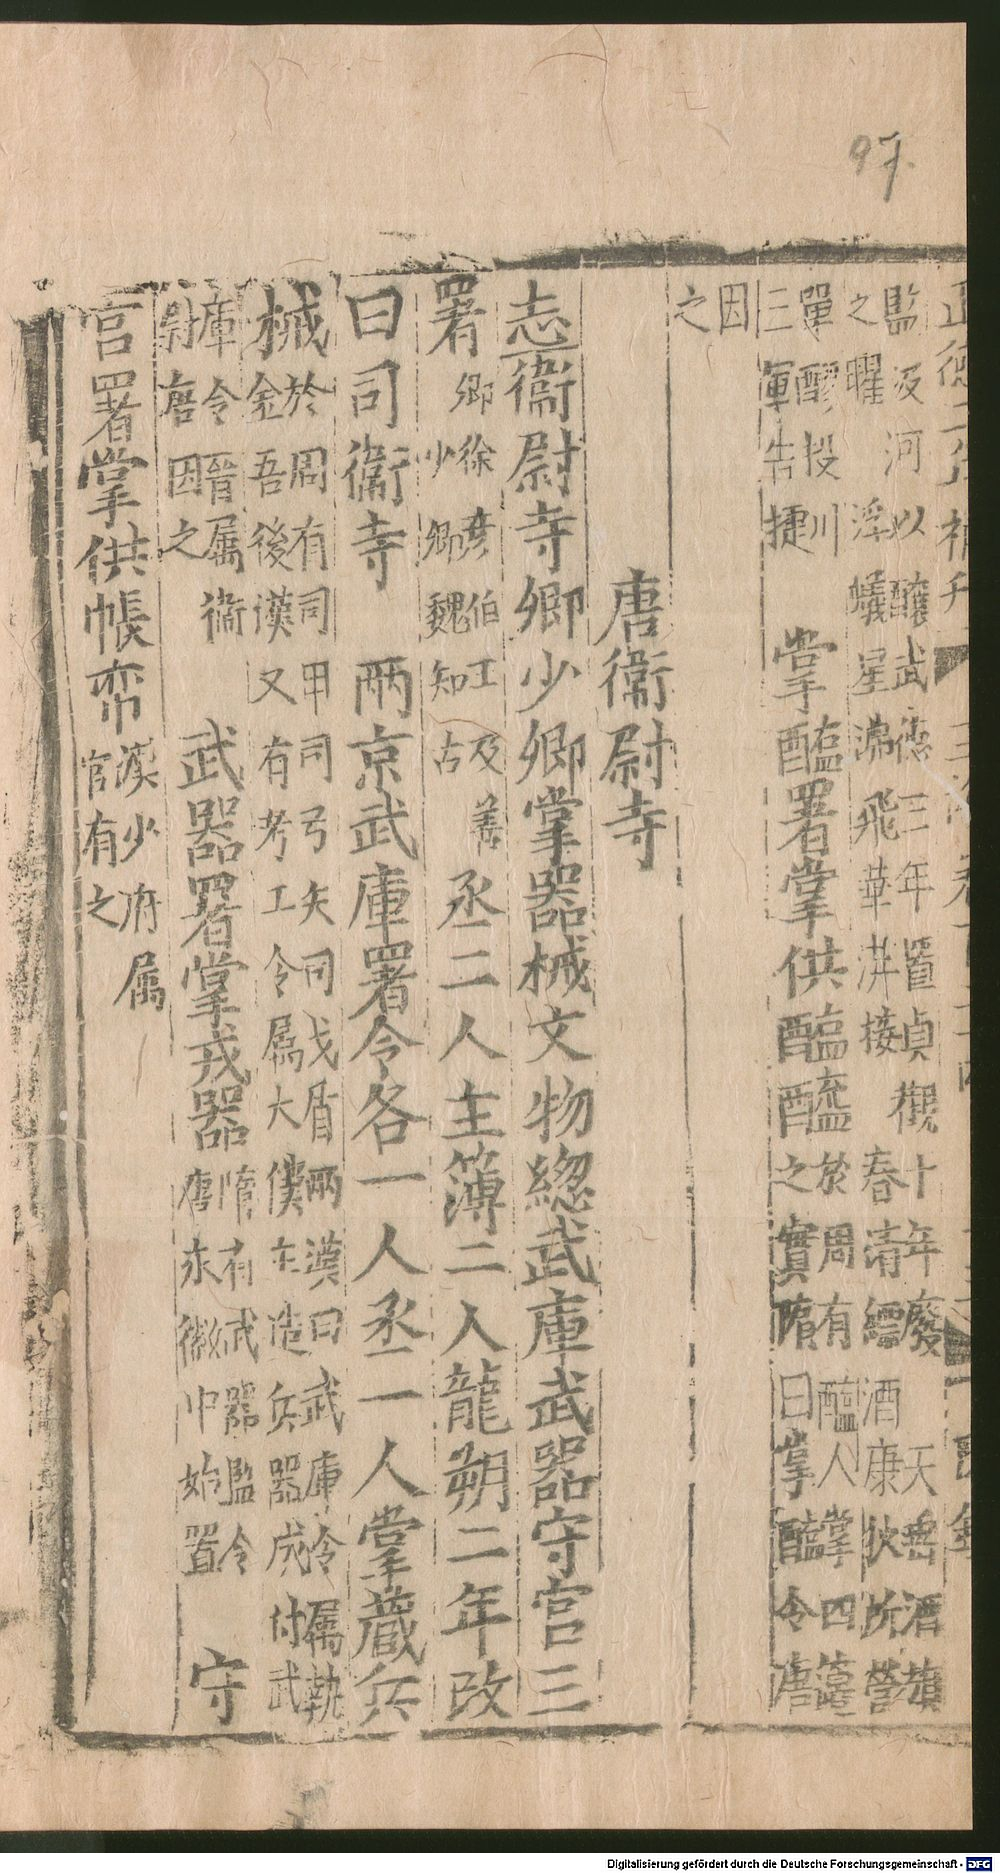 97
監河以釀武德三年置貞觀十年廢 天岳酒
之曜 浮蟻星沸飛華洪接 春清縹酒康狄所營
單醪投川
三軍告捷 掌醢署掌供醢醯之實
於周有醢人掌四籩
隋曰掌醢令唐
因
之
唐衞尉寺
志衞尉寺卿少卿掌器械文物緫武庫武器守宫三
署
卿徐彦伯王及善
少卿魏知古
丞二人主簿二人龍朔二年改
曰司衞寺 兩京武庫署令各一人丞一人掌藏兵
械
於周有司甲司弓矢司戈盾兩漢曰武庫令屬執
金吾後漢又有考工令屬大僕主造兵器成付武
庫令晉屬衞
尉唐因之
武器署掌戎器
隋有武器監令
唐永徽中始置
守
宫署掌供帳帟
漢少府屬
官有之
Digitalisierung gefördert durch die Deutsche Forschungsgemeinschaft - DFG